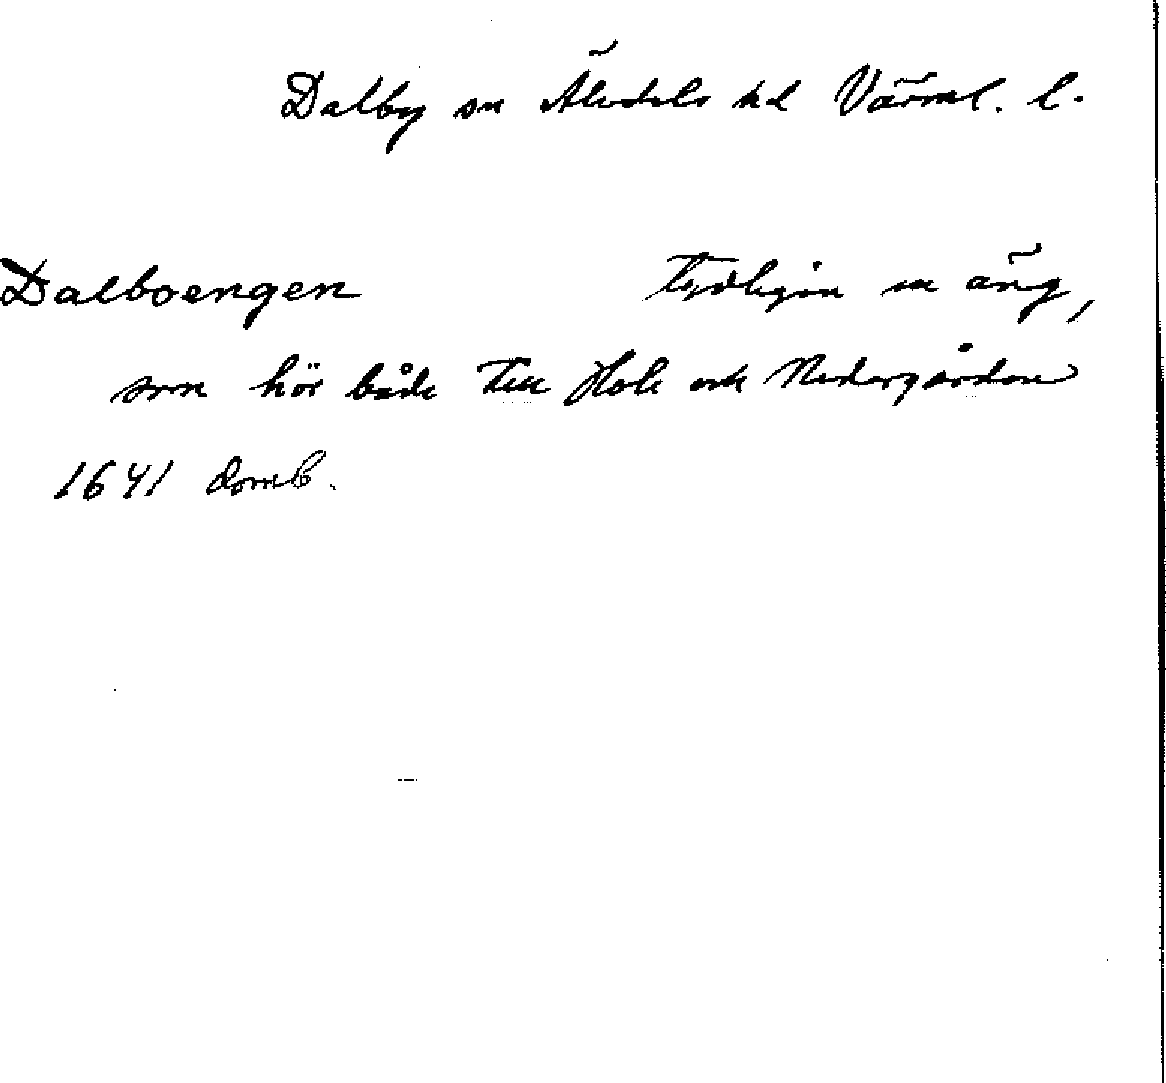 Dalby sn Älvdals hd Värml. l.
Dalboengen Tydligen en äng,
som hör både till Hole och Nedergården
1641 domb.